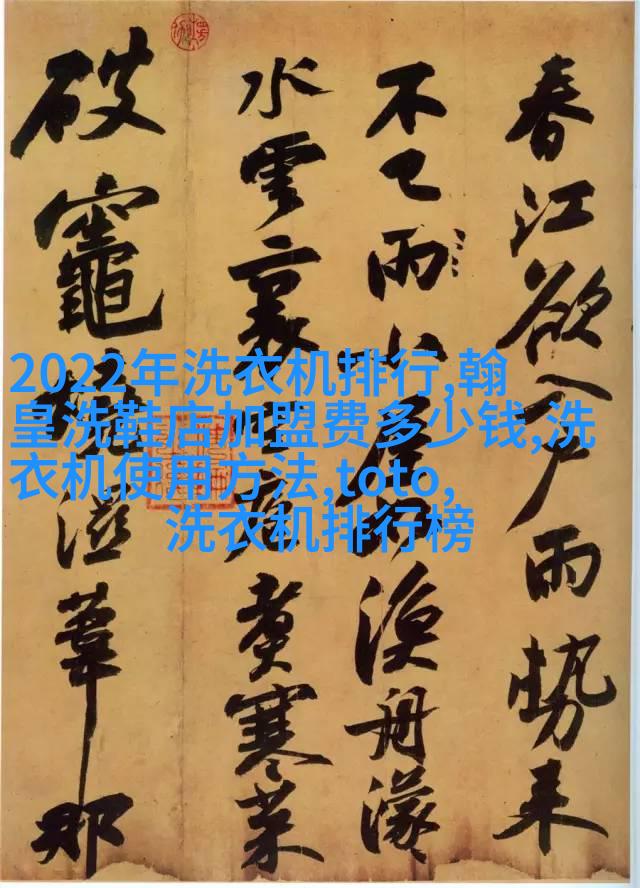 春江欲入戶雨勢來
不已雨小屋如漁舟濛
水雲裏空庖煮寒菜
破竈燒溼葦那
2022年洗衣机排行,翰
皇洗鞋店加盟费多少钱,洗
衣机使用方法,toto,
洗衣机排行榜